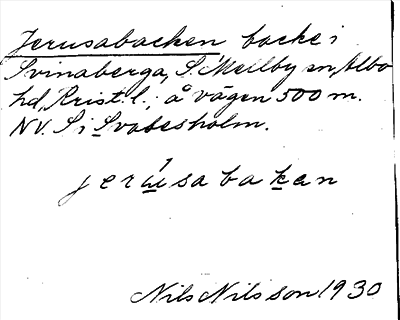 Jerusabacken backe i
Svinaberga, S. Mellby sn, Albo
hd, Krist. l.; å vägen 500 m.
NV. S i Svabesholm.
jerúsabakan
Nils Nilsson 1930